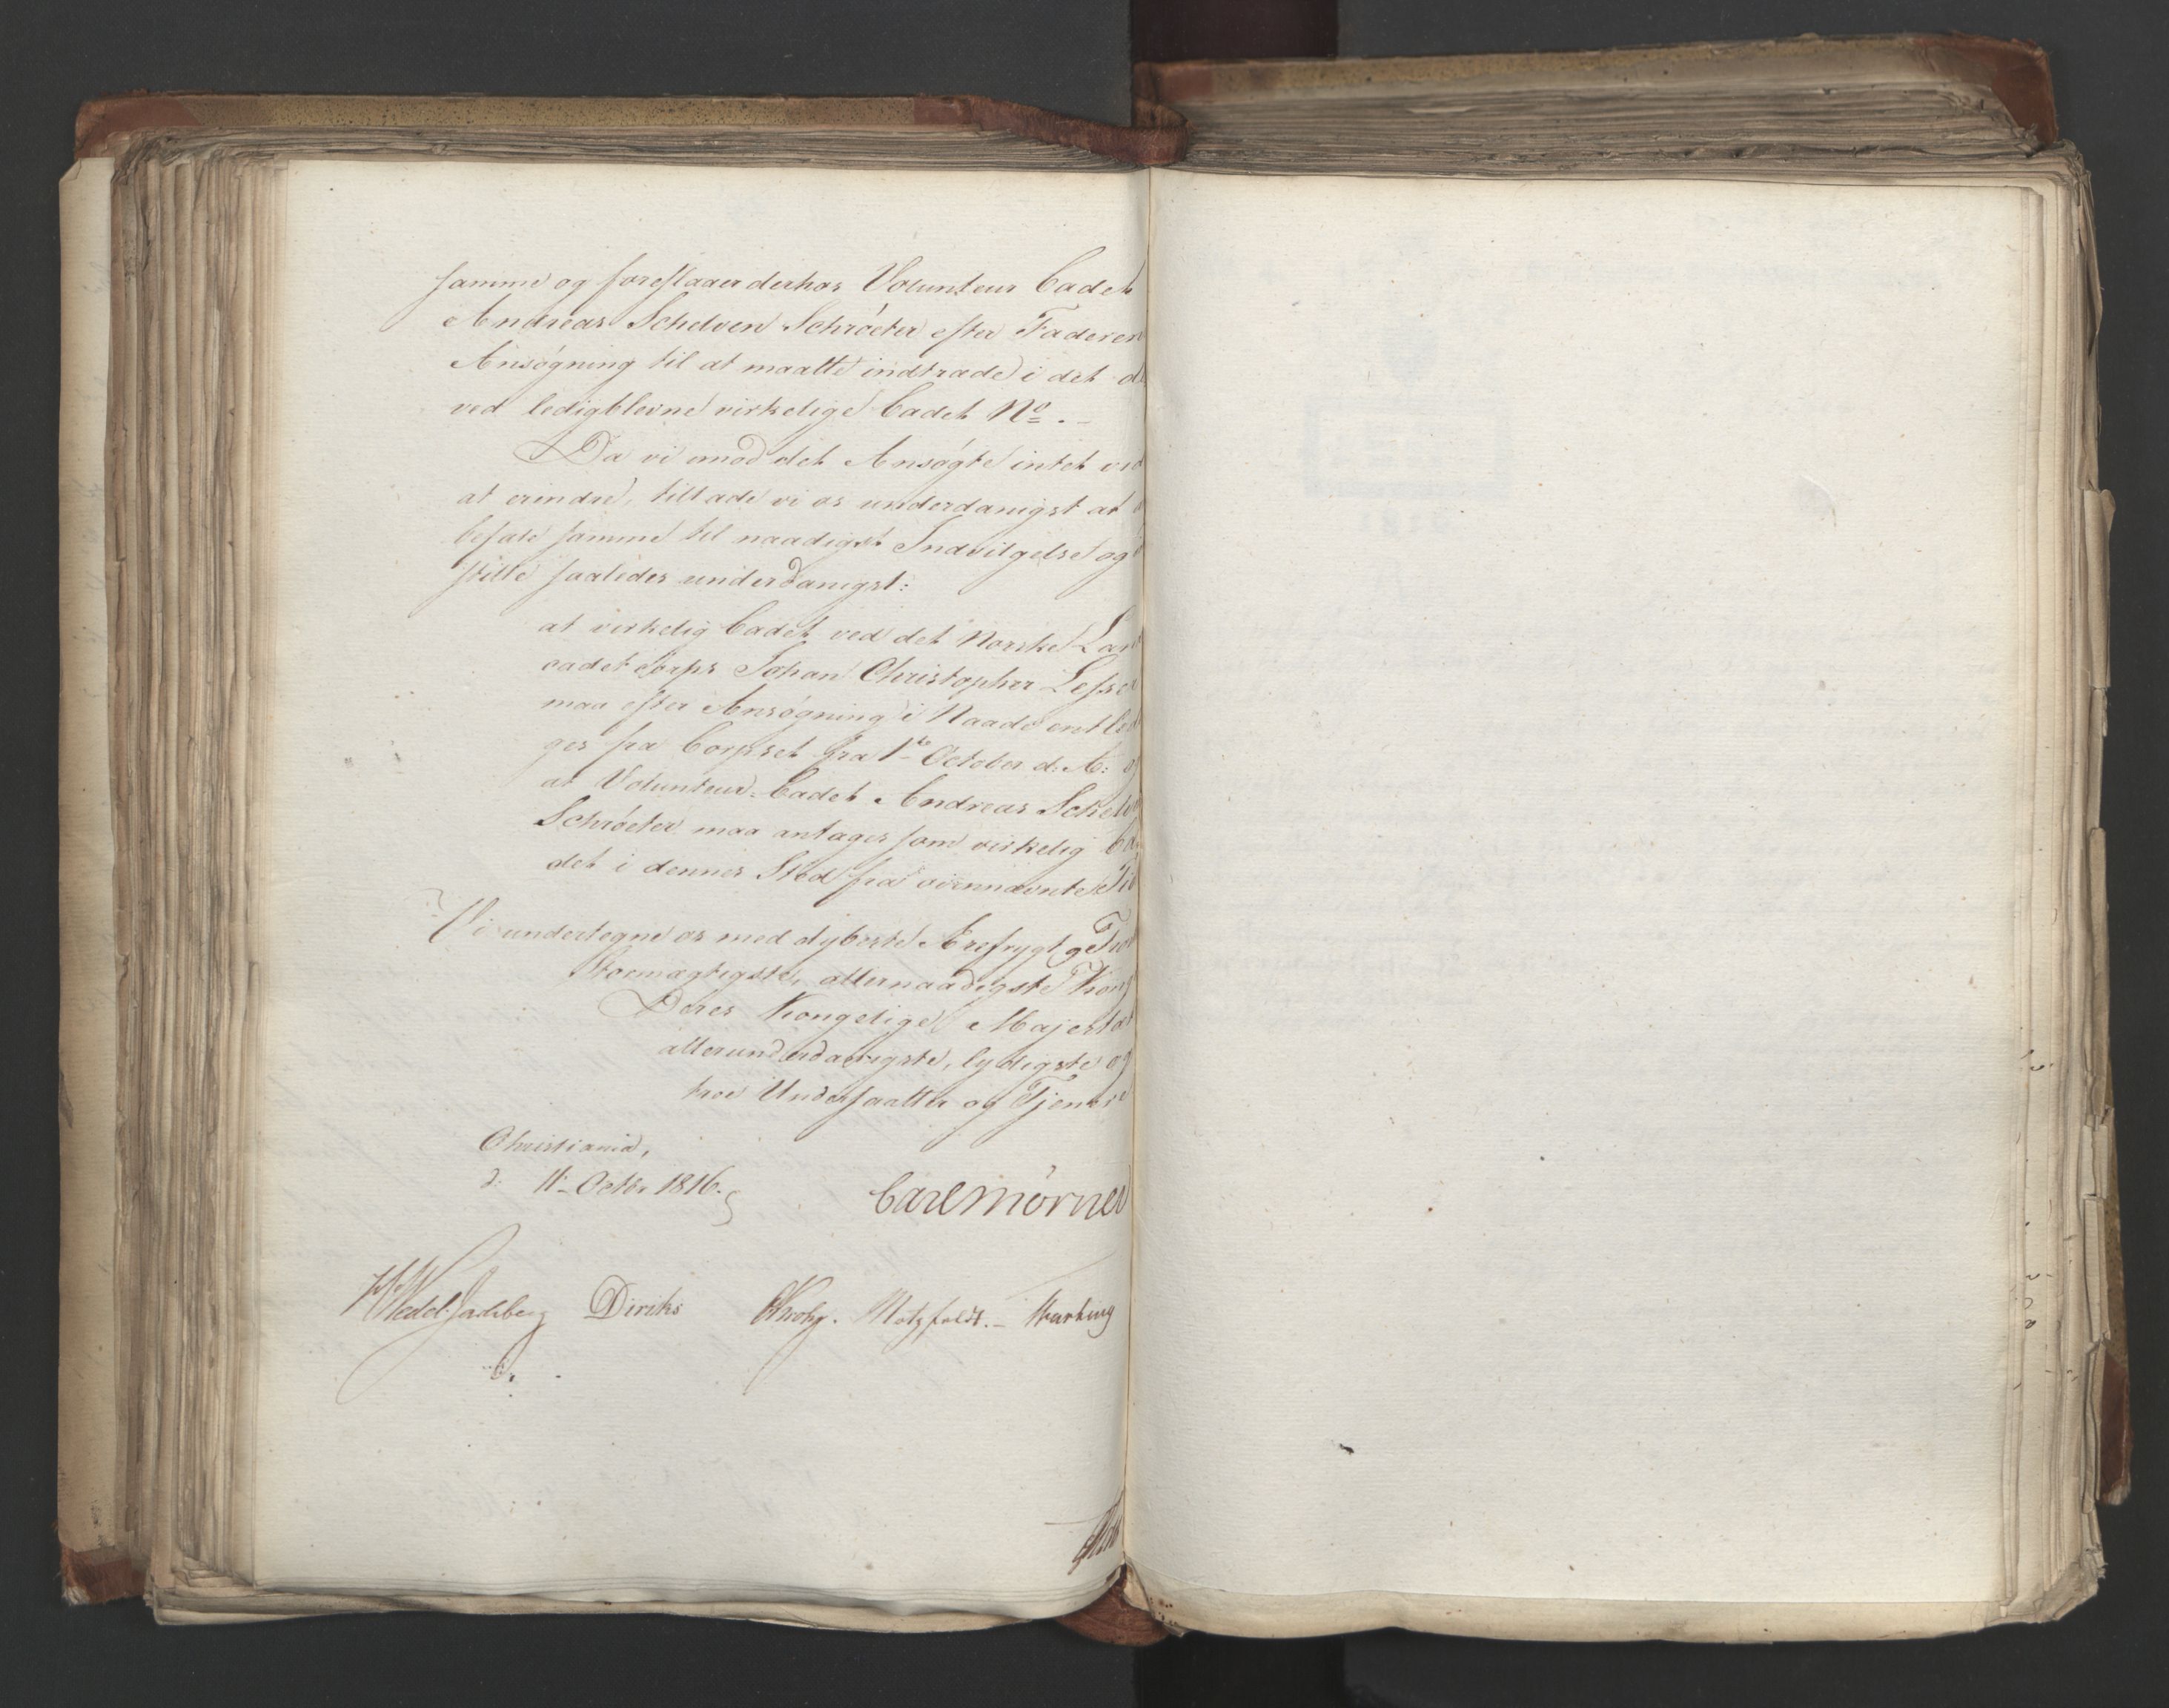 samme og foreslaaer derhos Volunteur Cadet
Andreas Schelven Schrøeter efter Faderen
Ansøgning til at maatte indtræde i det
ved ledigblevne virkelige Cadet No. -
Da vi imod det Ansøgte intet
at erindre, tillade vi os underdanigst at
befale samme til naadigst Indvilgelse og
stille saaledes underdanigst:
at virkelig Cadet ved det Norske Land
cadet Corps Johan Christopher Lesser
maa efter Ansøgning i Naade entled
ges fra Corpset fra 1te October d: A: og
at Volunteur-Cadet Andreas Schelv
Schrøeter maa antages som virkelig Ca
det i dennes Sted fra ovennævnte Tid
Vi undertegne os med dybeste Ærefrygt
Stormægtigste, allernaadigste Konge
Deres Kongelige Majestæt
allerunderdanigste, lydigste og
troe Undersaatter og Tjenere
Christiania,
d: 11. Octbr 1816.
Carl Mörner
Wedel-Jarlsberg Diriks Krohg. Motzfeldt. -